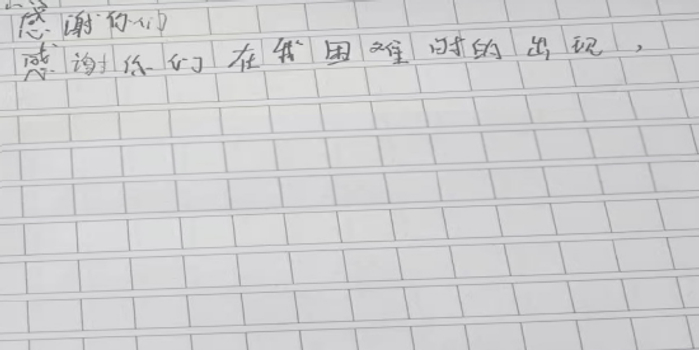 感谢你们
感谢你们在我困难时的出现，